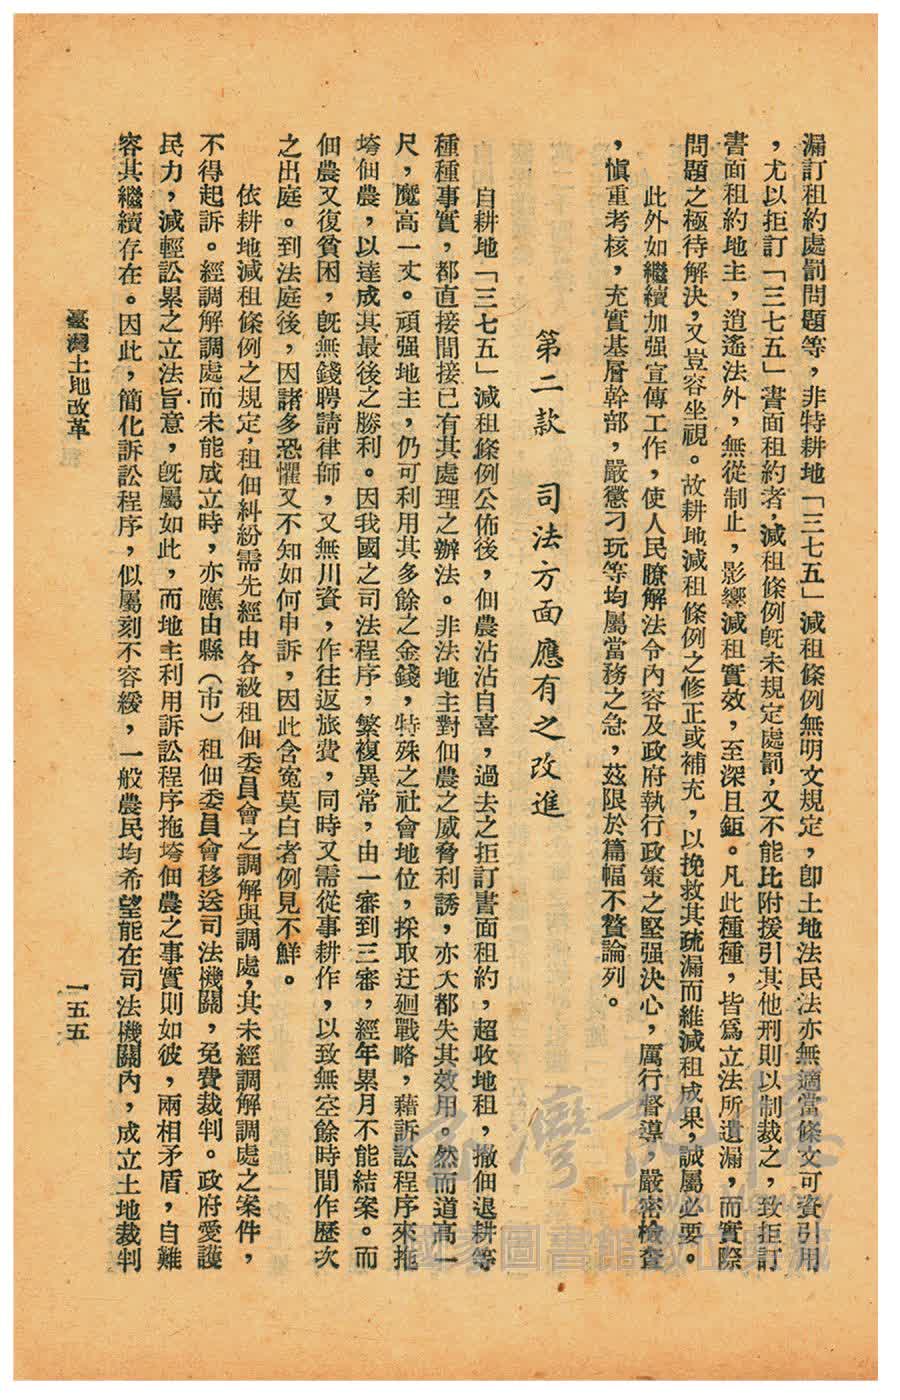 漏訂租約處罰問題等，非特耕地「三七五」減租條例無明文規定，卽土地法民法亦無適當條文可資引用
，尤以拒訂「三七五」書面租約者，減租條例旣未規定處罰，又不能比附援引其他刑則以制裁之，致拒訂
書面租約地主，逍遙法外，無從制止，影響減租實效，至深且鉅。凡此種種，皆爲立法所遺漏，而實際
問題之極待解決，又豈容坐視。故耕地減租條例之修正或補充，以挽救其疏漏而維減租成果，誠屬必要。
此外如繼續加强宣傳工作，使人民瞭解法令內容及政府執行政策之堅强決心，厲行督導，嚴密檢查
，愼重考核，充實基層幹部，嚴懲刁玩等均屬當務之急，茲限於篇幅不贅論列。
第二款　司法方面應有之改進
自耕地「三七五」減租條例公佈後，佃農沾沾自喜，過去之拒訂書面租約，超收地租，撤佃退耕等
種種事實，都直接間接已有其處理之辦法。非法地主對佃農之威脅利誘，亦大都失其效用。然而道高一
尺，魔高一丈。頑强地主，仍可利用其多餘之金錢，特殊之社會地位，採取迂廻戰略，藉訴訟程序來拖
垮佃農，以達成其最後之勝利。因我國之司法程序，繁複異常，由一審到三審，經年累月不能結案。而
佃農又復貧困，旣無錢聘請律師，又無川資，作往返旅費，同時又需從事耕作，以致無空餘時間作歷次
之出庭。到法庭後，因諸多恐懼又不知如何申訴，因此含寃莫白者例見不鮮。
依耕地減租條例之規定，租佃糾紛需先經由各級租佃委員會之調解與調處，其未經調解調處之案件，
不得起訴。經調解調處而未能成立時，亦應由縣（市）租佃委員會移送司法機關，免費裁判。政府愛護
民力，減輕訟累之立法旨意，旣屬如此，而地主利用訴訟程序拖垮佃農之事實則如彼，兩相矛盾，自難
容其繼續存在。因此，簡化訴訟程序，似屬刻不容緩，一般農民均希望能在司法機關內，成立土地裁判
臺灣土地改革
一五五
臺灣記憶
Taiwan Memory
國家圖書館數位典藏